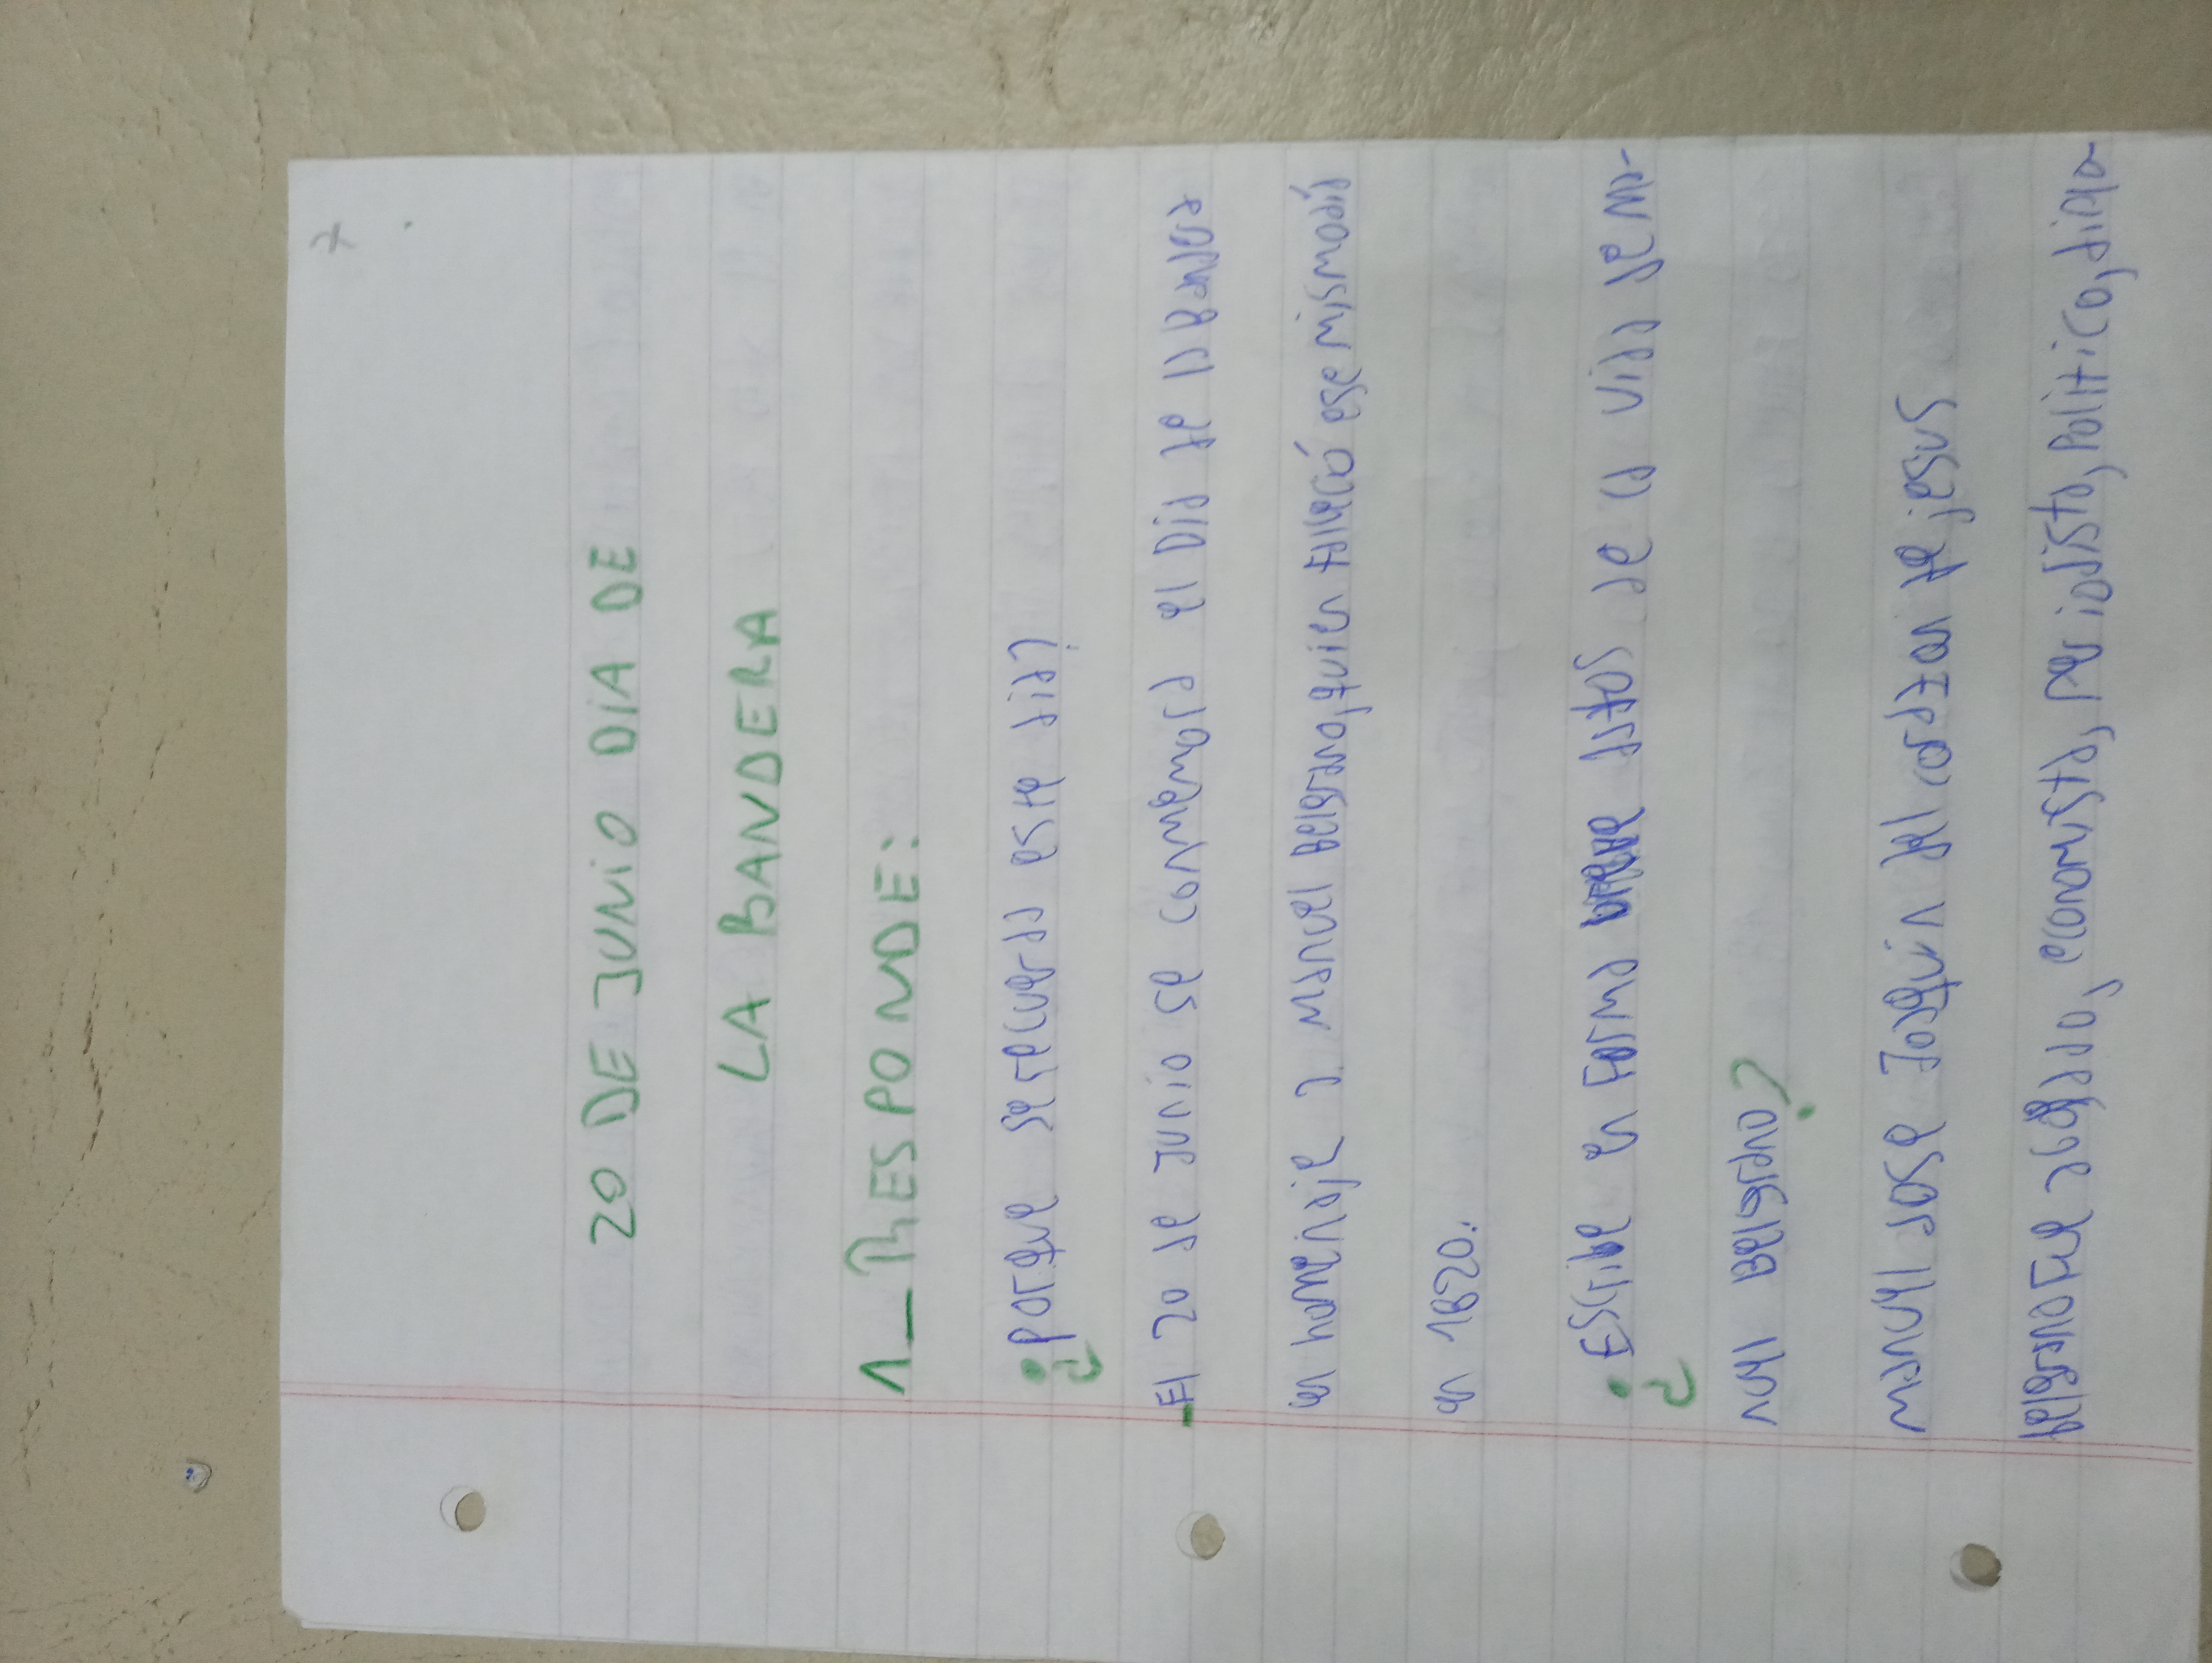 20 DE JUNIO DIA DE
LA BANDERA
1_ RESPONDE:
¿Porque se recuerda este dia?
El 20 de Junio se conmemora el Dia de la Bandera
en homenaje a Manuel Belgrano, quien falleció ese mismo día
en 1820.
¿Escribe en forma breve datos de la vida de Ma-
nuel Belgrano?
Manuel José Joaquín del corazon de jesus
Belgrano Fue abogado, economista, periodista, politico, diplo-